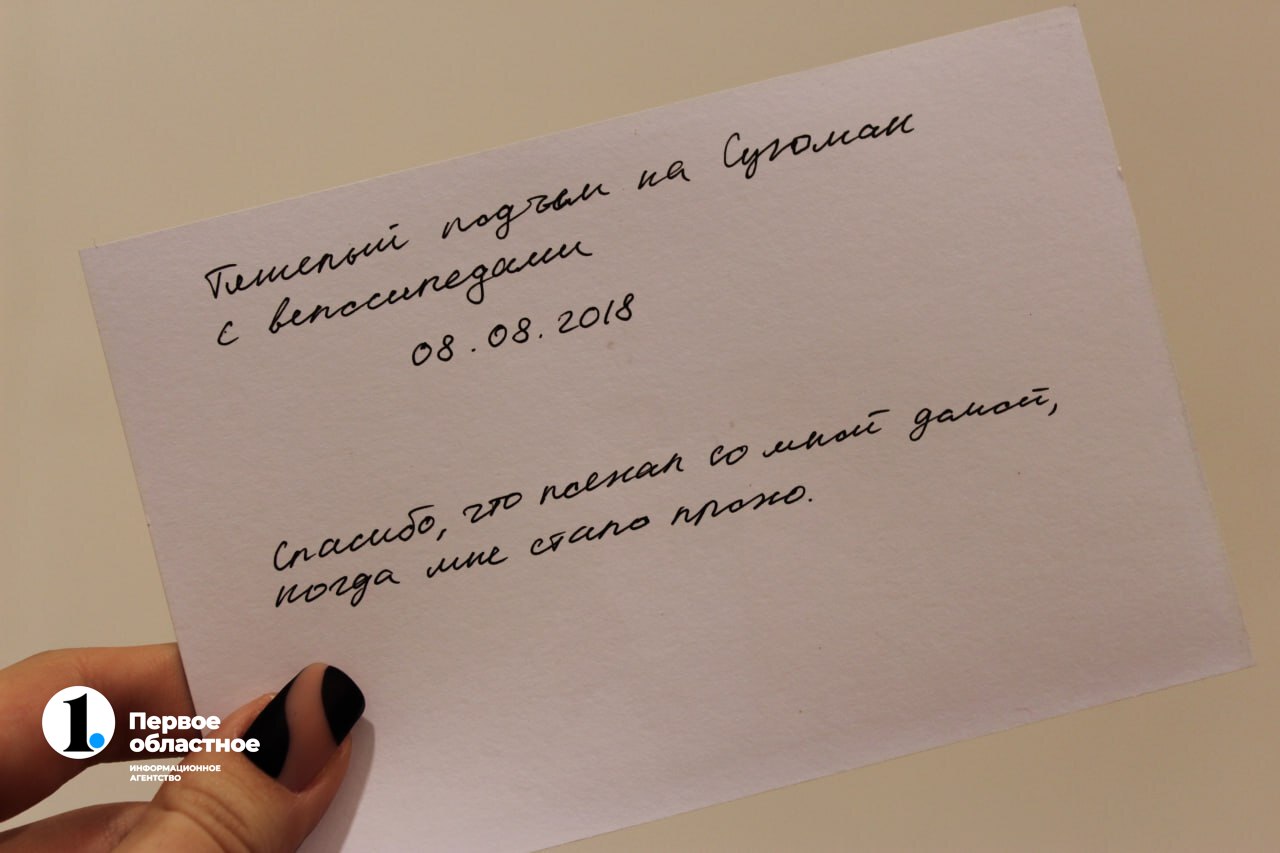 Тяжелый подъем на Сугомак
с велосипедами
08.08.2018
Спасибо, что поехал со мной домой,
когда мне стало плохо.
1.
Первое
областное
ИНФОРМАЦИОННОЕ
АГЕНТСТВО